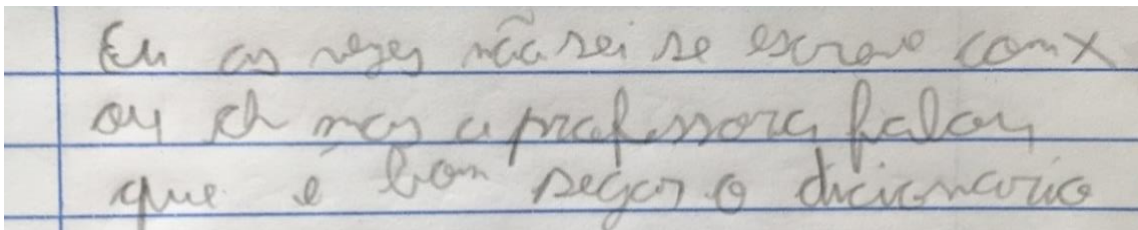 Eu as vezes não sei se escrevo com x
ou ch mas a professora falou
que é bom pegar o dicionario